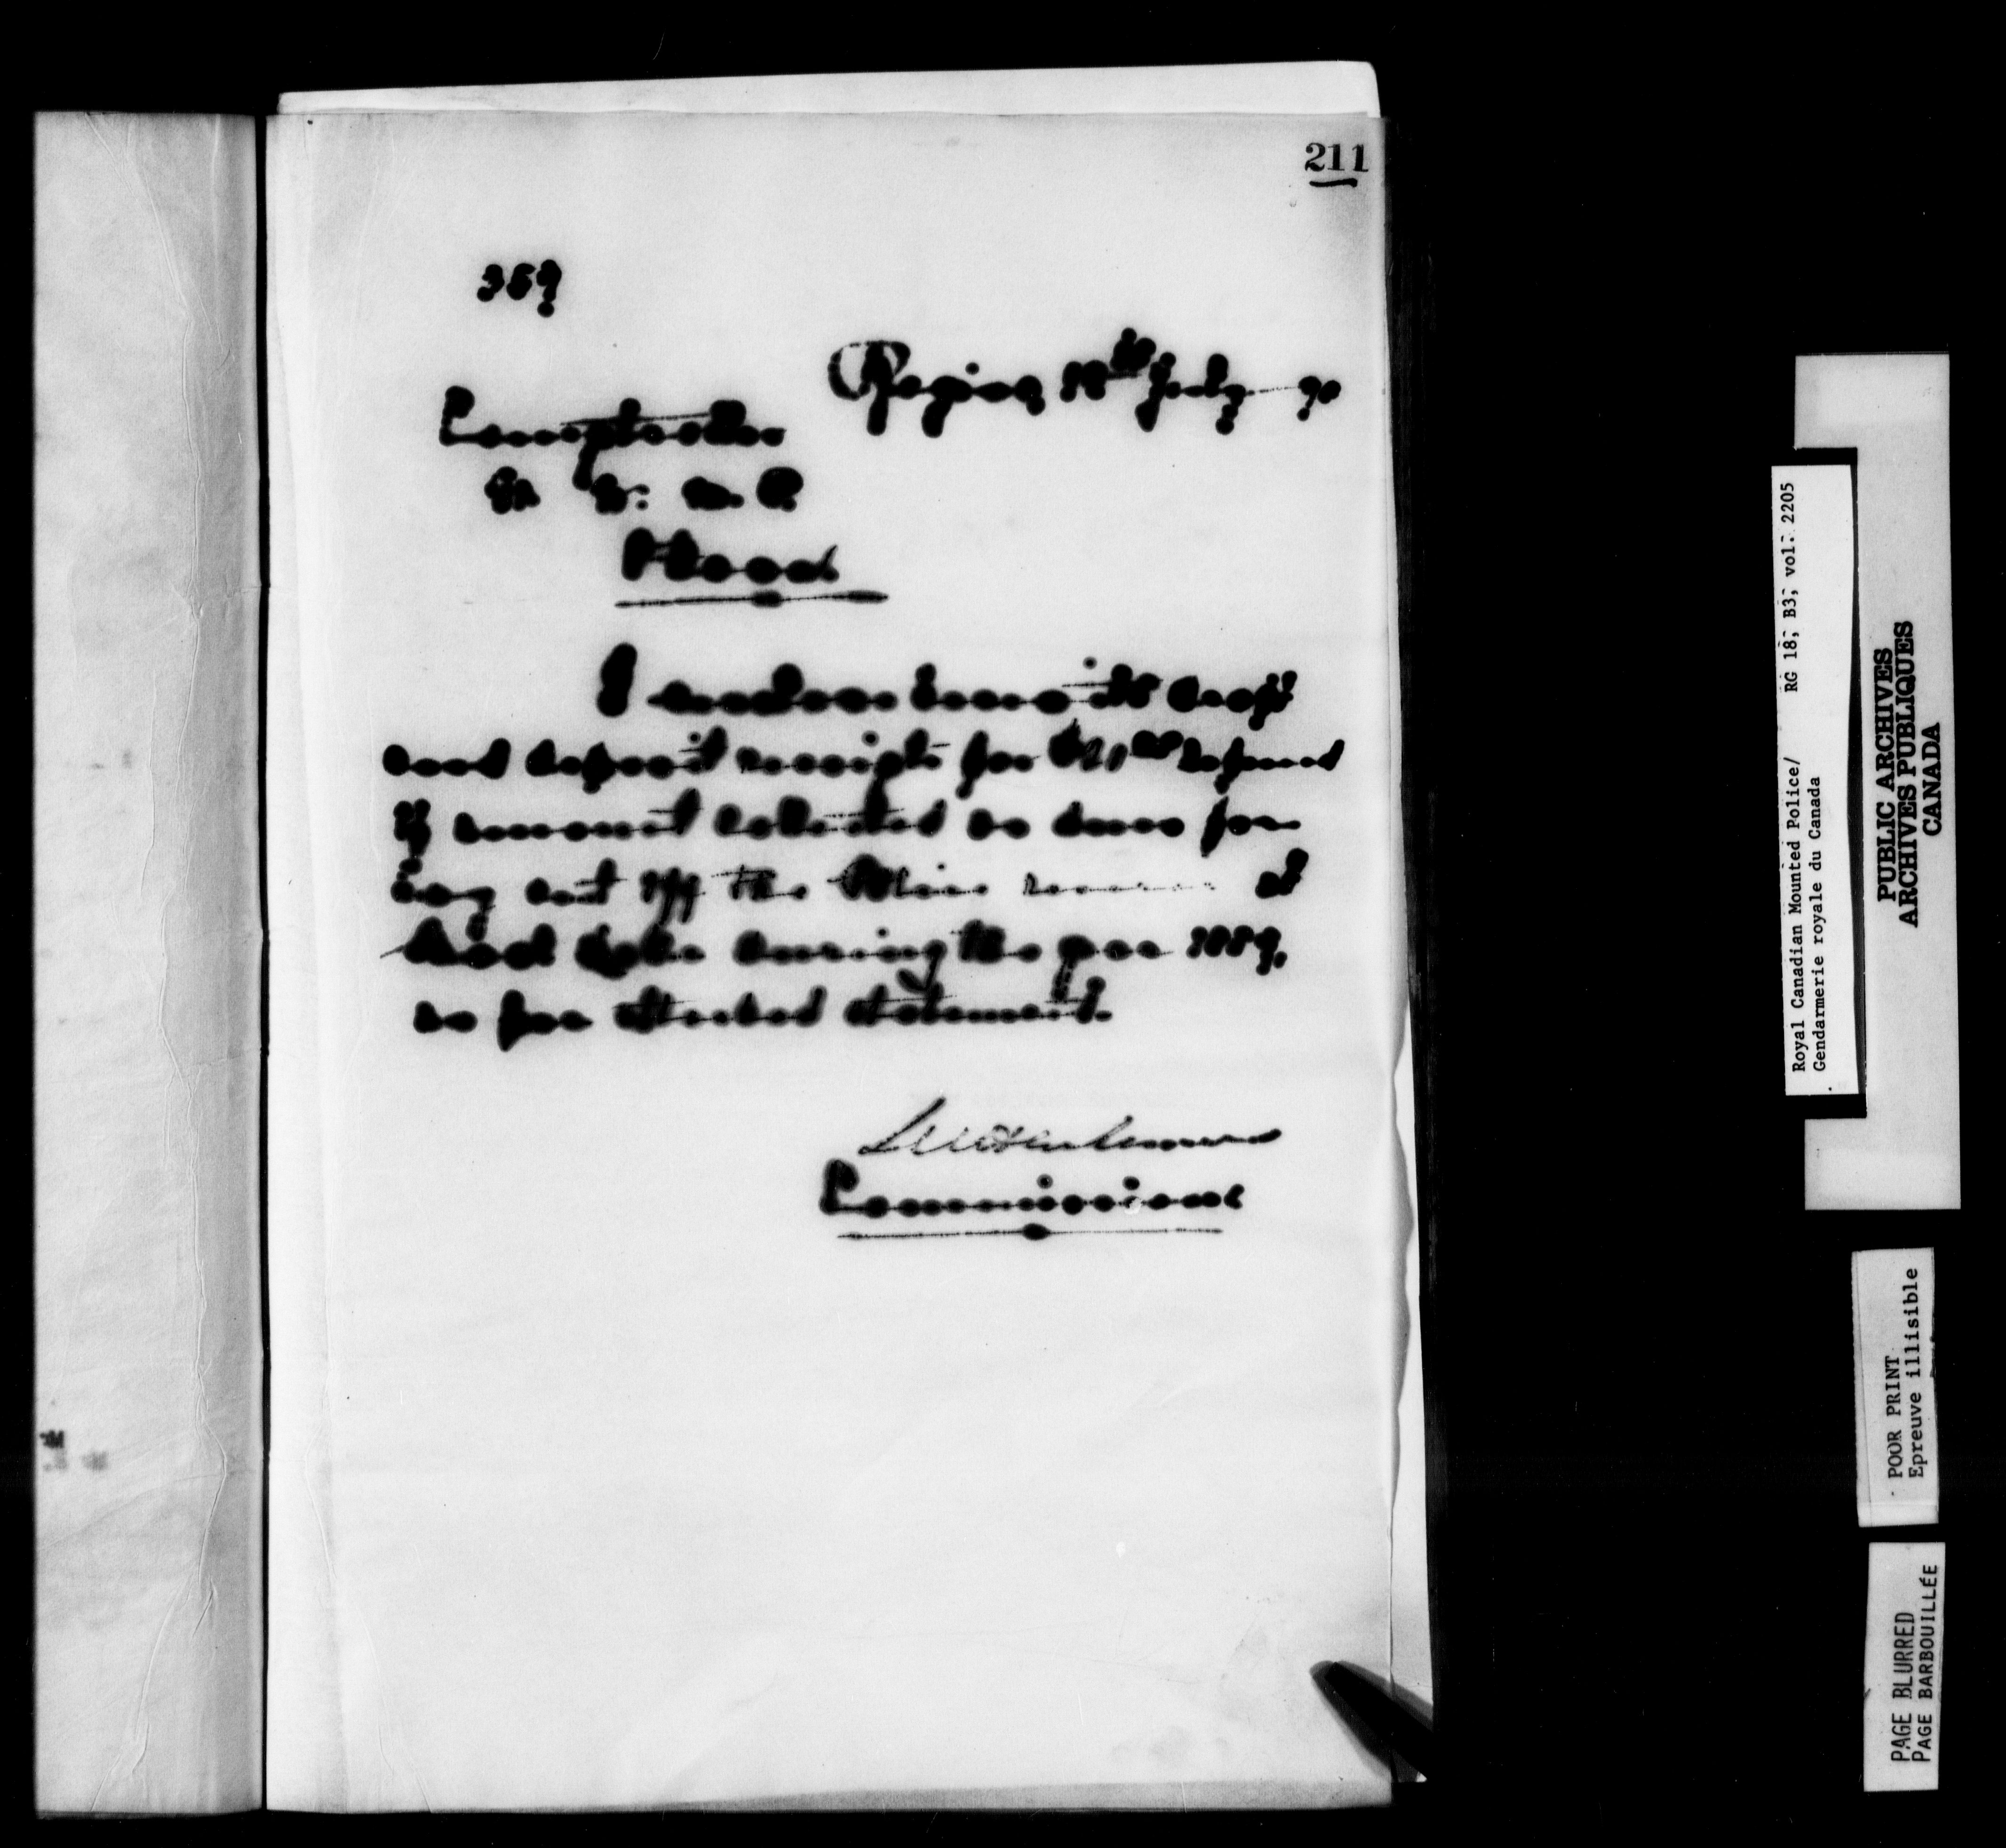 211
359
Regina 18th July 90
Comptroller
N. W. M. P.
Ottawa
I enclose herewith draft
and deposit receipts for refund
of amount collected as dues for
hay cut off the Police reserve at
during the year 1889,
as per attached statement.
Commissioner
Royal Canadian Mounted Police/ RG 18, B3, vol. 2205
Gendarmerie royale du Canada
PUBLIC ARCHIVES
ARCHIVES PUBLIQUES
CANADA
POOR PRINT
Epreuve illisible
PAGE BLURRED
PAGE BARBOUILLÉE